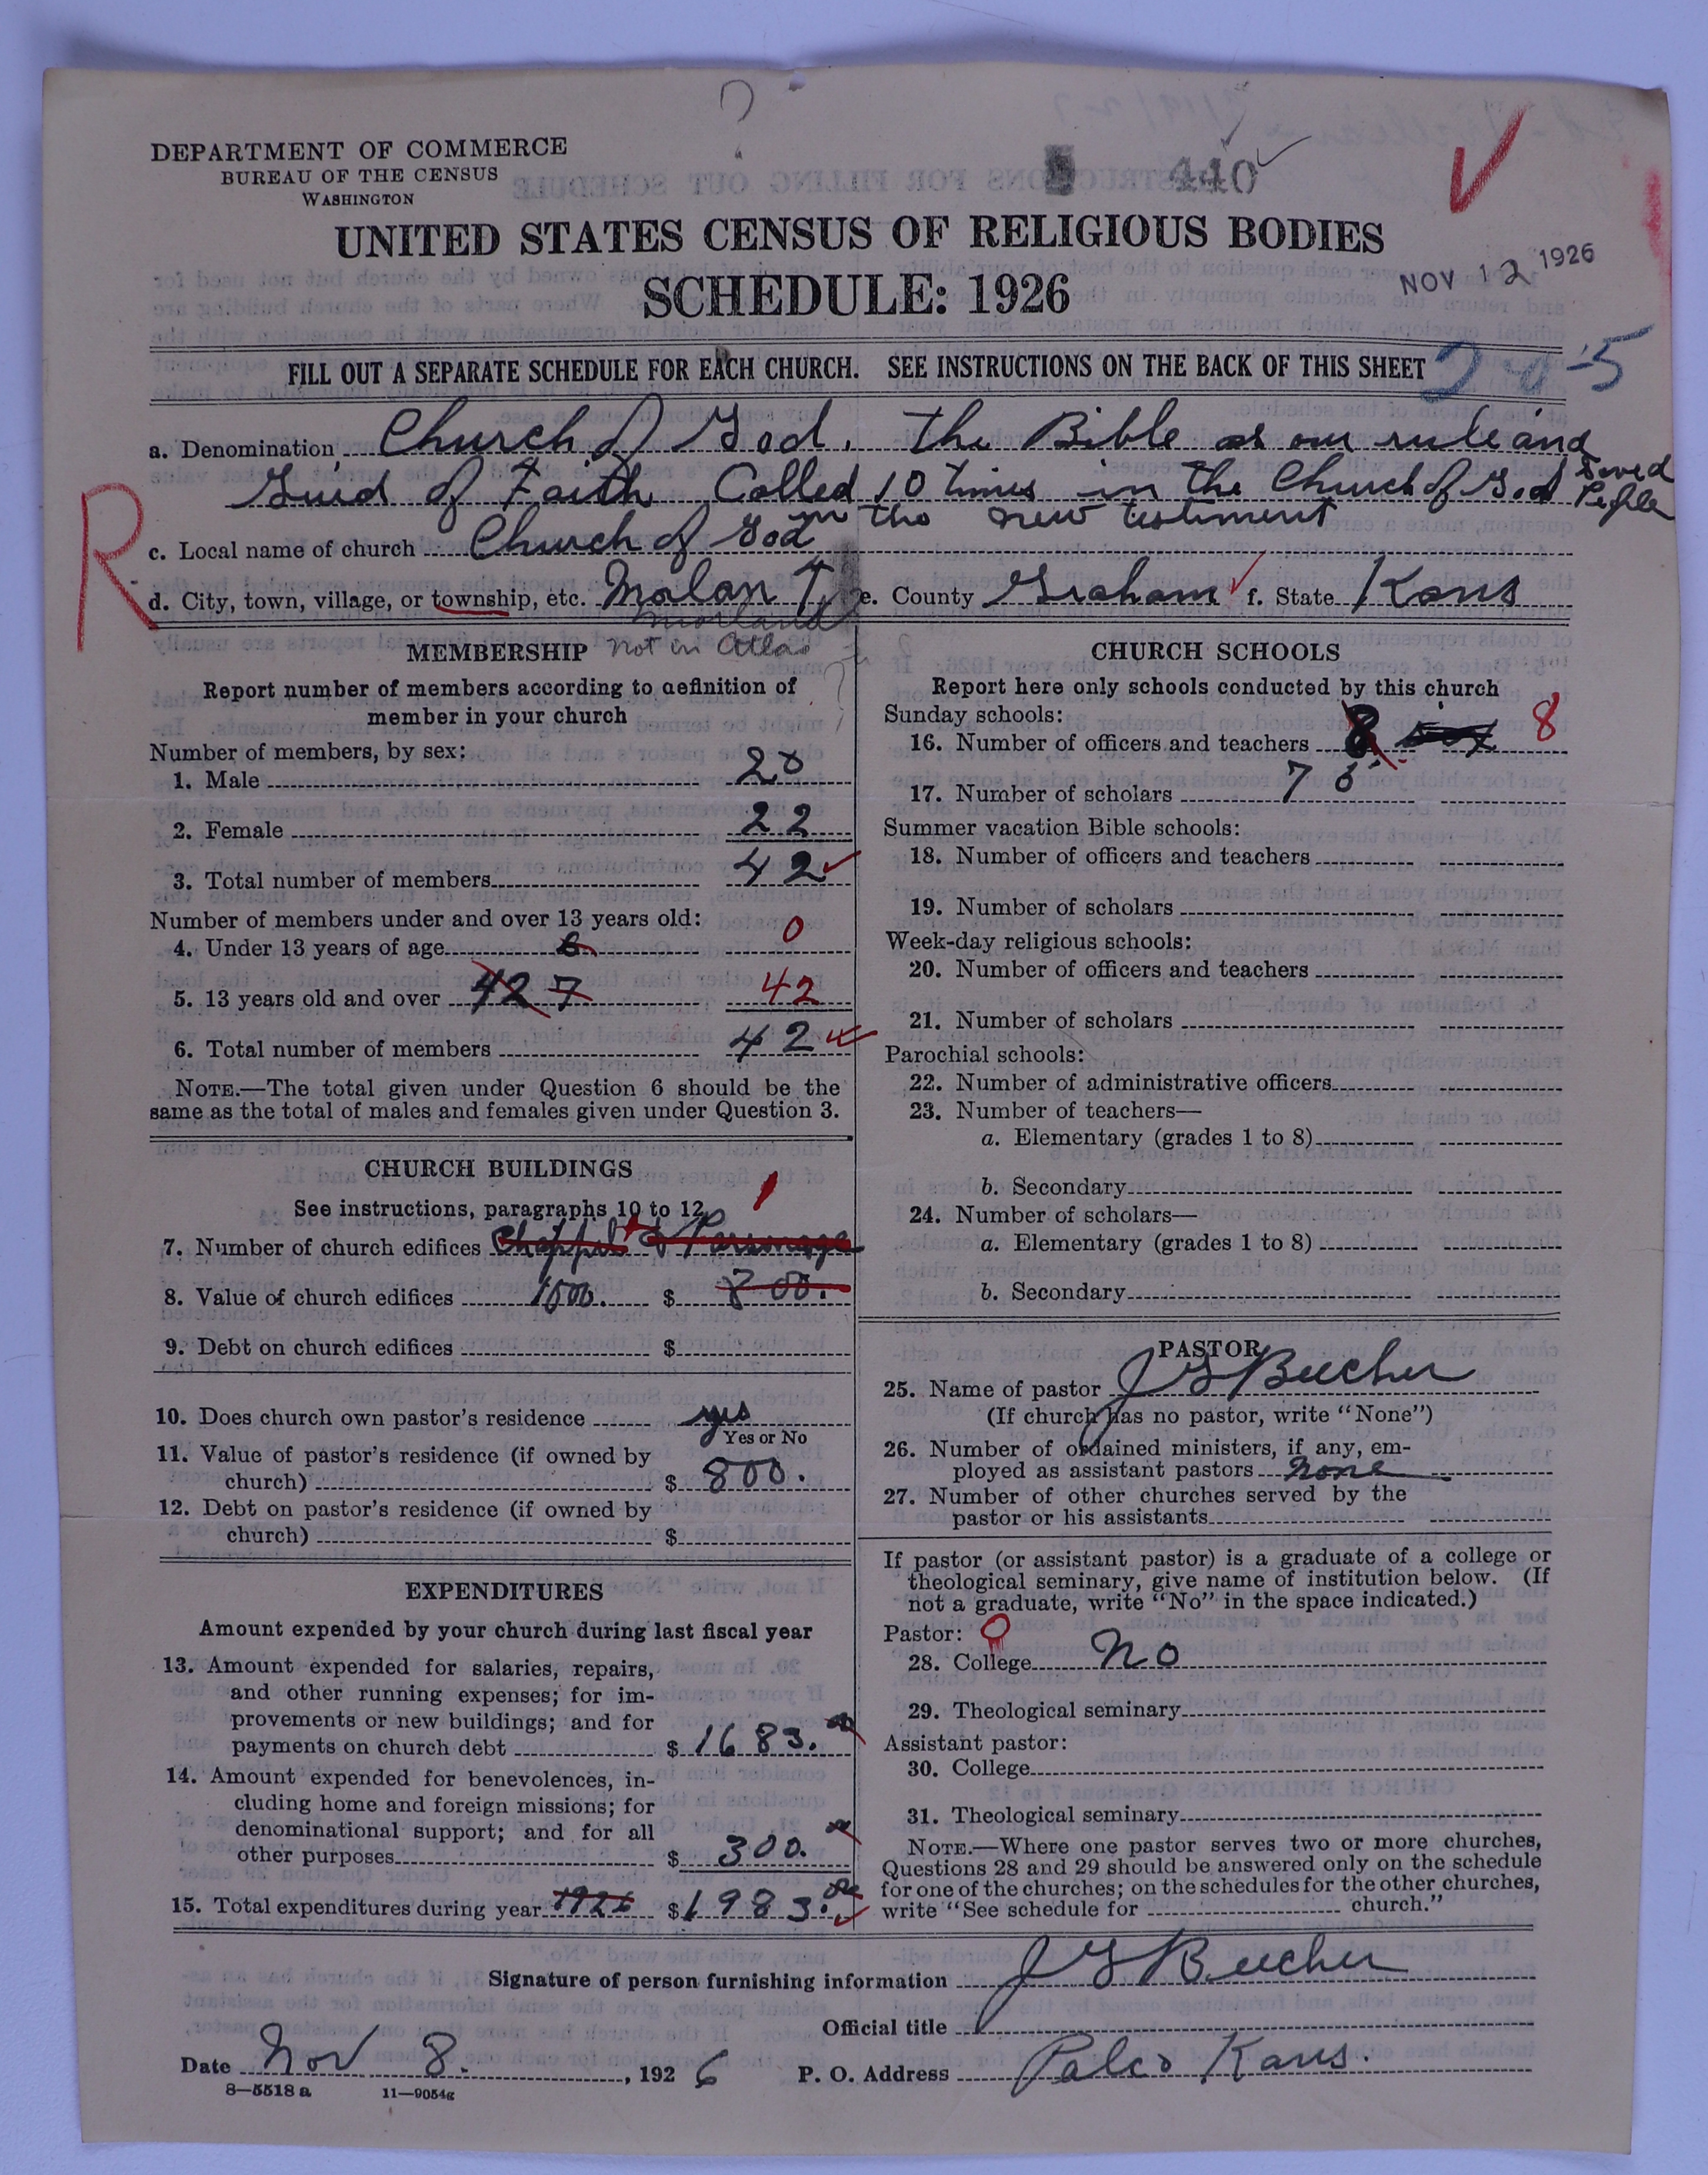 DEPARTMENT OF COMMERCE
BUREAU OF THE CENSUS
WASHINGTON
440
UNITED STATES CENSUS OF RELIGIOUS BODIES
SCHEDULE: 1926
NOV 12 1926
FILL OUT A SEPARATE SCHEDULE FOR EACH CHURCH. SEE INSTRUCTIONS ON THE BACK OF THIS SHEET
2-0-5
a. Denomination Church of God. The Bible as our rule and
Guid of Faith Called 10 times in the Church of God Saved People
in the new testiment
R
c. Local name of church Church of God
d. City, town, village, or township, etc. Molan T e. County Graham f. State Kans
Morland
not in Atlas
MEMBERSHIP
Report number of members according to definition of
member in your church
Number of members, by sex:
1. Male 20
2. Female 22
3. Total number of members 42
Number of members under and over 13 years old:
4. Under 13 years of age 0
5. 13 years old and over 42 7 42
6. Total number of members 42
NOTE.—The total given under Question 6 should be the
same as the total of males and females given under Question 3.
CHURCH BUILDINGS
See instructions, paragraphs 10 to 12
1
7. Number of church edifices Chappel & Parsonage
8. Value of church edifices 1500. $ 800.
9. Debt on church edifices $
10. Does church own pastor's residence yes
Yes or No
11. Value of pastor's residence (if owned by
church) $ 800.
12. Debt on pastor's residence (if owned by
church) $
EXPENDITURES
Amount expended by your church during last fiscal year
13. Amount expended for salaries, repairs,
and other running expenses; for im-
provements or new buildings; and for
payments on church debt $ 1683.00
14. Amount expended for benevolences, in-
cluding home and foreign missions; for
denominational support; and for all
other purposes $ 300.00
15. Total expenditures during year 1926 $ 1983.00
CHURCH SCHOOLS
Report here only schools conducted by this church
Sunday schools:
16. Number of officers and teachers 8 8
17. Number of scholars 75
Summer vacation Bible schools:
18. Number of officers and teachers
19. Number of scholars
Week-day religious schools:
20. Number of officers and teachers
21. Number of scholars
Parochial schools:
22. Number of administrative officers
23. Number of teachers—
a. Elementary (grades 1 to 8)
b. Secondary
24. Number of scholars—
a. Elementary (grades 1 to 8)
b. Secondary
PASTOR
25. Name of pastor J G Beecher
(If church has no pastor, write "None")
26. Number of ordained ministers, if any, em-
ployed as assistant pastors none
27. Number of other churches served by the
pastor or his assistants
If pastor (or assistant pastor) is a graduate of a college or
theological seminary, give name of institution below. (If
not a graduate, write "No" in the space indicated.)
Pastor: 0
28. College No
29. Theological seminary
Assistant pastor:
30. College
31. Theological seminary
NOTE.—Where one pastor serves two or more churches,
Questions 28 and 29 should be answered only on the schedule
for one of the churches; on the schedules for the other churches,
write "See schedule for church."
Signature of person furnishing information J G Beecher
Official title
Date Nov 8. , 1926 P. O. Address Palco Kans.
8—5518 a 11—9054g